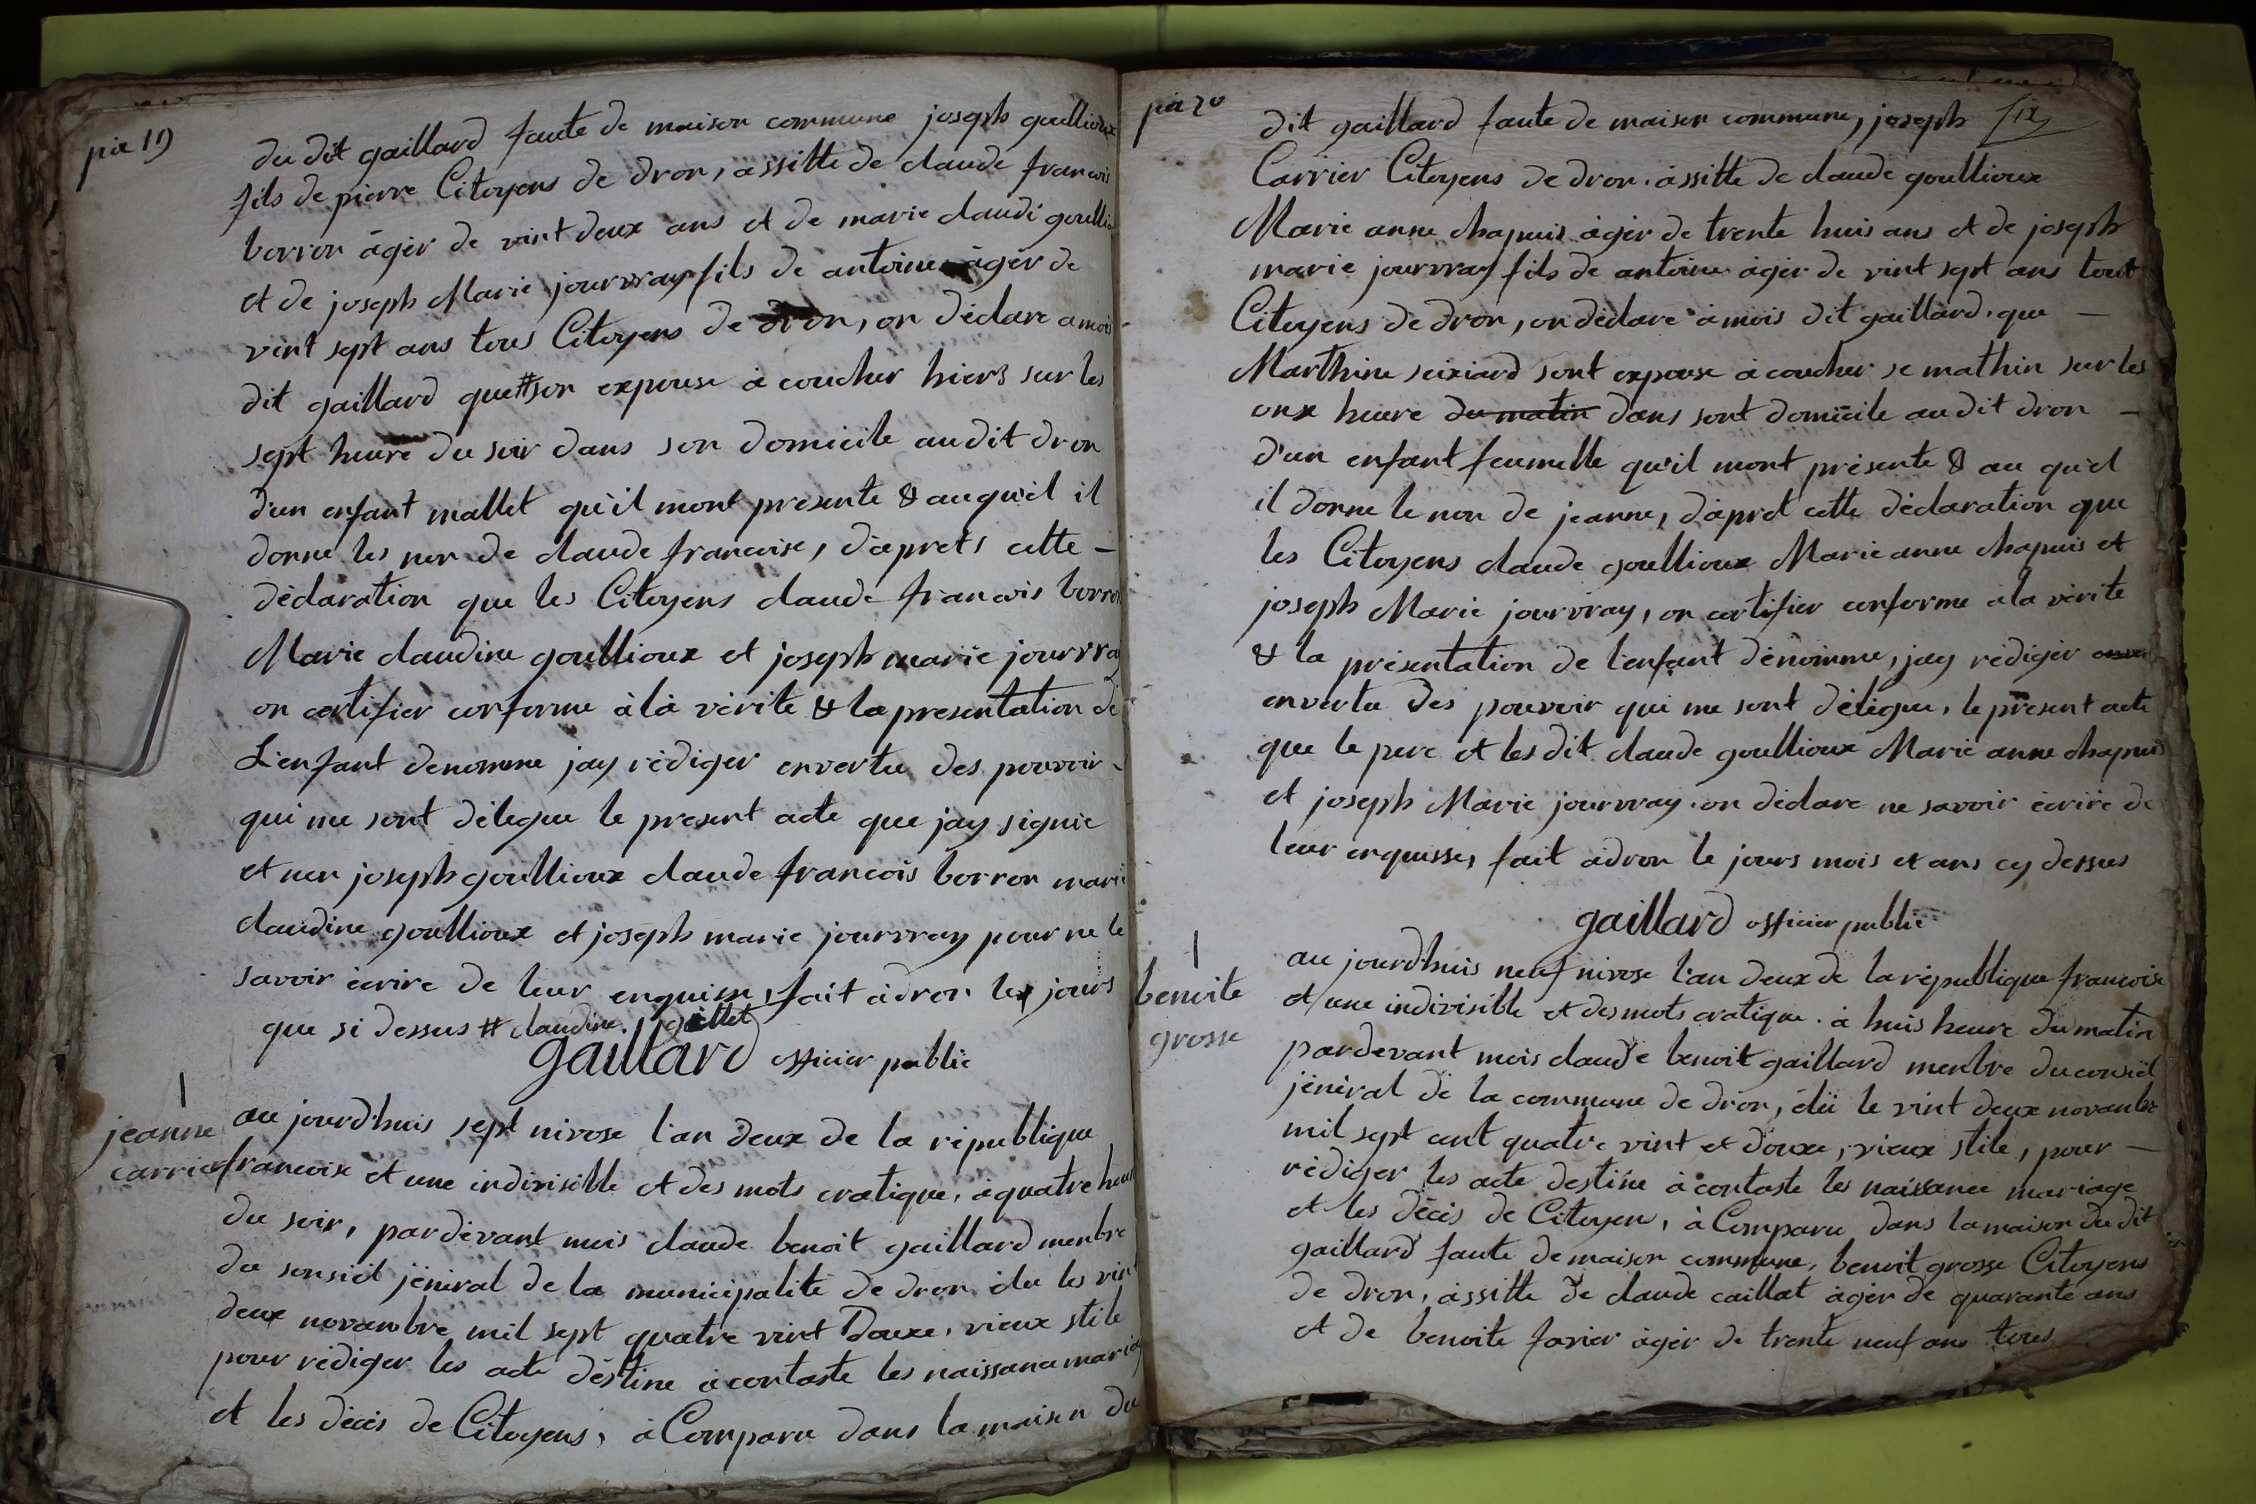 pie 19
du dit gaillard faute de maison commune joseph goullioux
fils de pierre Citoyens de dron, assitte de claude francois
borron âgér de vint deux ans et de marie claudi goullio
et de joseph Marie jourvray fils de antoine âgér de
vint sept ans tous Citoyens de dron, on déclare a mois
dit gaillard que # son expouse à coucher hiers sur les
sept heure du soir dans son domicile audit dron
d'un enfant mallet qu'il mont presente & auquéil il
donne les non de claude francoise, d'aprets cette -
déclaration que les Citoyens claude francois borron
Marie claudine goullioux et joseph marie jourvray
on certifier conforme à là vérite & la presentation de
L'enfant denomme jay rédiger envertu des pouvoir -
qui me sont délegue le present acte que jay signie
et non joseph goullioux claude francois borron marie
claudine goullioux et joseph marie jourvray pour ne le
savoir écrire de leur enquisse, fait àdron les jours
que si dessus # claudine gillet
gaillard officier public
jeanne
carrier
au jourd'huis sept nivose l'an deux de la république
francoise et une indivisible et des mots cratique, à quatre heure
du soir, pardevant mois claude benoit gaillard menbre
du consiél jéniral de la municipalite de dron élu les vint
deux novanbre mil sept quatre vint Douxe, vieux stile
pour rédiger les acte déstine à contaste les naissance mariag
et les décés de Citoyens, à Comparu dans la maison du
pie 20
six
dit gaillard faute de maison commune, joseph
Carrier Citoyens de dron, assitte de claude goullioux
Marie anne chapuis âgér de trente huis ans et de joseph
marie jourvray fils de antoine âgér de vint sept ans tout
Citoyens de dron, on déclare à mois dit gaillard, que -
Marthine seixiard sont expouse à coucher se mathin sur les
onx heure du matin dans sont domicile au dit dron -
d'un enfant feumelle qu'il mont présente & au qu'el
il donne le non de jeanne, d'apret cette déclaration que
les Citoyens claude goullioux Marie anne chapuis et
joseph Marie jourvray, on certifier conforme à la vérite
& la présentation de l'enfant dénomme, jay rédiger
envertu Des pouvoir qui me sont délégue, le present acte
que le pere et les dit claude goullioux Marie anne chapuis
et joseph Marie jourvray, on déclare ne savoir écrire de
leur enquisse, fait à dron le jours mois et ans cy dessus
gaillard officier public
benoite
grosse
au jourd'huis neuf nivose l'an deux de la république francoise
et une indivisible et des mots cratique. à huis heure du matin
pardevant mois claude benoit gaillard menbre du consiél
jéniral de la commune de dron, élü le vint deux novanbre
mil sept cent quatre vint et douxe, vieux stile, pour -
rédiger les acte destine à contaste les naissance mariage
et les décés de Citoyen, à Comparu dans la maison du dit
gaillard faute de maison commune, benoit grosse Citoyens
de dron, assitte de claude caillat âgér de quarante ans
et de benoite favier âgér de trente neuf ans tous